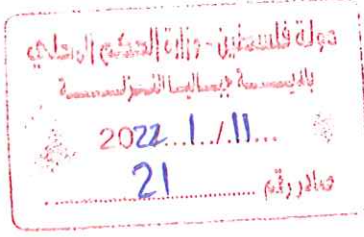 دولة فلسطين - وزارة الحكم المحلي
بلديـــة جبـاليـا النـزلـــــة
2022...1../.11...
صادر رقم ......21......